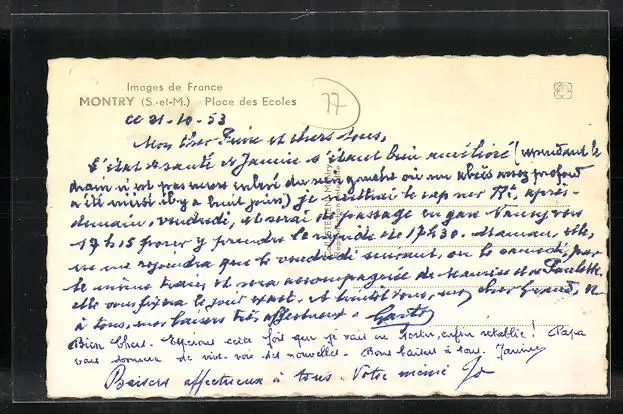 Images de France
MONTRY (S.-et-M.) Place des Ecoles
77
ce 21-10-53
Mon cher Frère et chers tous,
L'état de santé de Janine s'étant bien amélioré (cependant le
drain n'est pas encore enlevé du sein gauche où un abcès assez profond
a été incisé il y a huit jours) je mettrai le cap sur Bt, après-
demain, vendredi, et serai de passage en gare Nancy vers
17h15 pour y prendre le rapide de 17h30. Maman, elle,
ne me rejoindra que le vendredi suivant, ou le samedi, par
le même train, et sera accompagnée de Maurice et de Paulette.
elle vous fixera le jour exact. A bientôt tous, mon cher Grand, et
à tous, mes baisers très affectueux. Gaston
Bien chers. Espérons cette fois que je vais en sortir, enfin rétablie! Papa
vous donnera de vive-voix des nouvelles. Bons baisers à tous. Janine
Baisers affectueux à tous. Votre mémé Jo